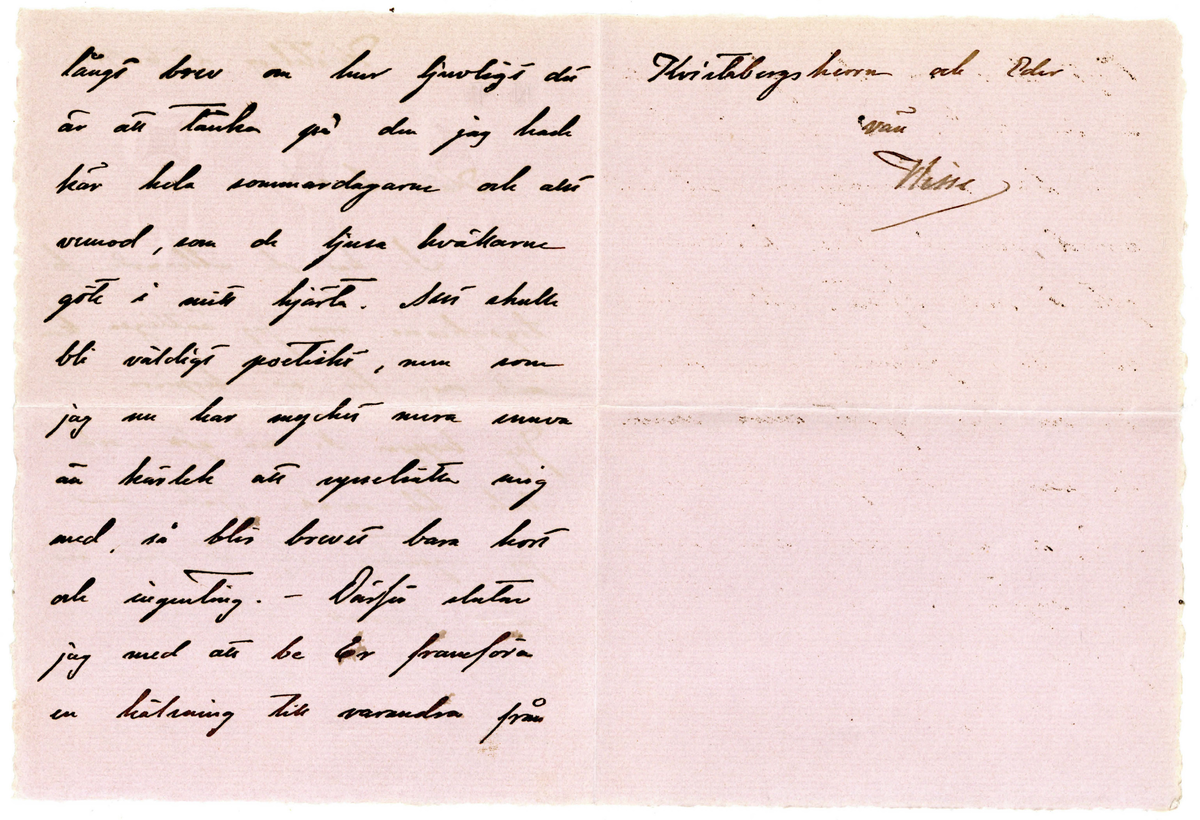 långt brev om hur ljuvligt det
är att tänka på den jag hade
kär hela sommardagarne och allt
vemod, som de ljusa kvällarne
göte i mitt hjärta. Allt skulle
bli väldigt poetiskt, men som
jag nu har mycket mera snuva
än kärlek att sysselsätta mig
med, så blir brevet bara kort
och ingenting. – Därför slutar
jag med att be Er framföra
en hälsning till varandra från
Kvistabergsherrn och Eder
vän
Nisse